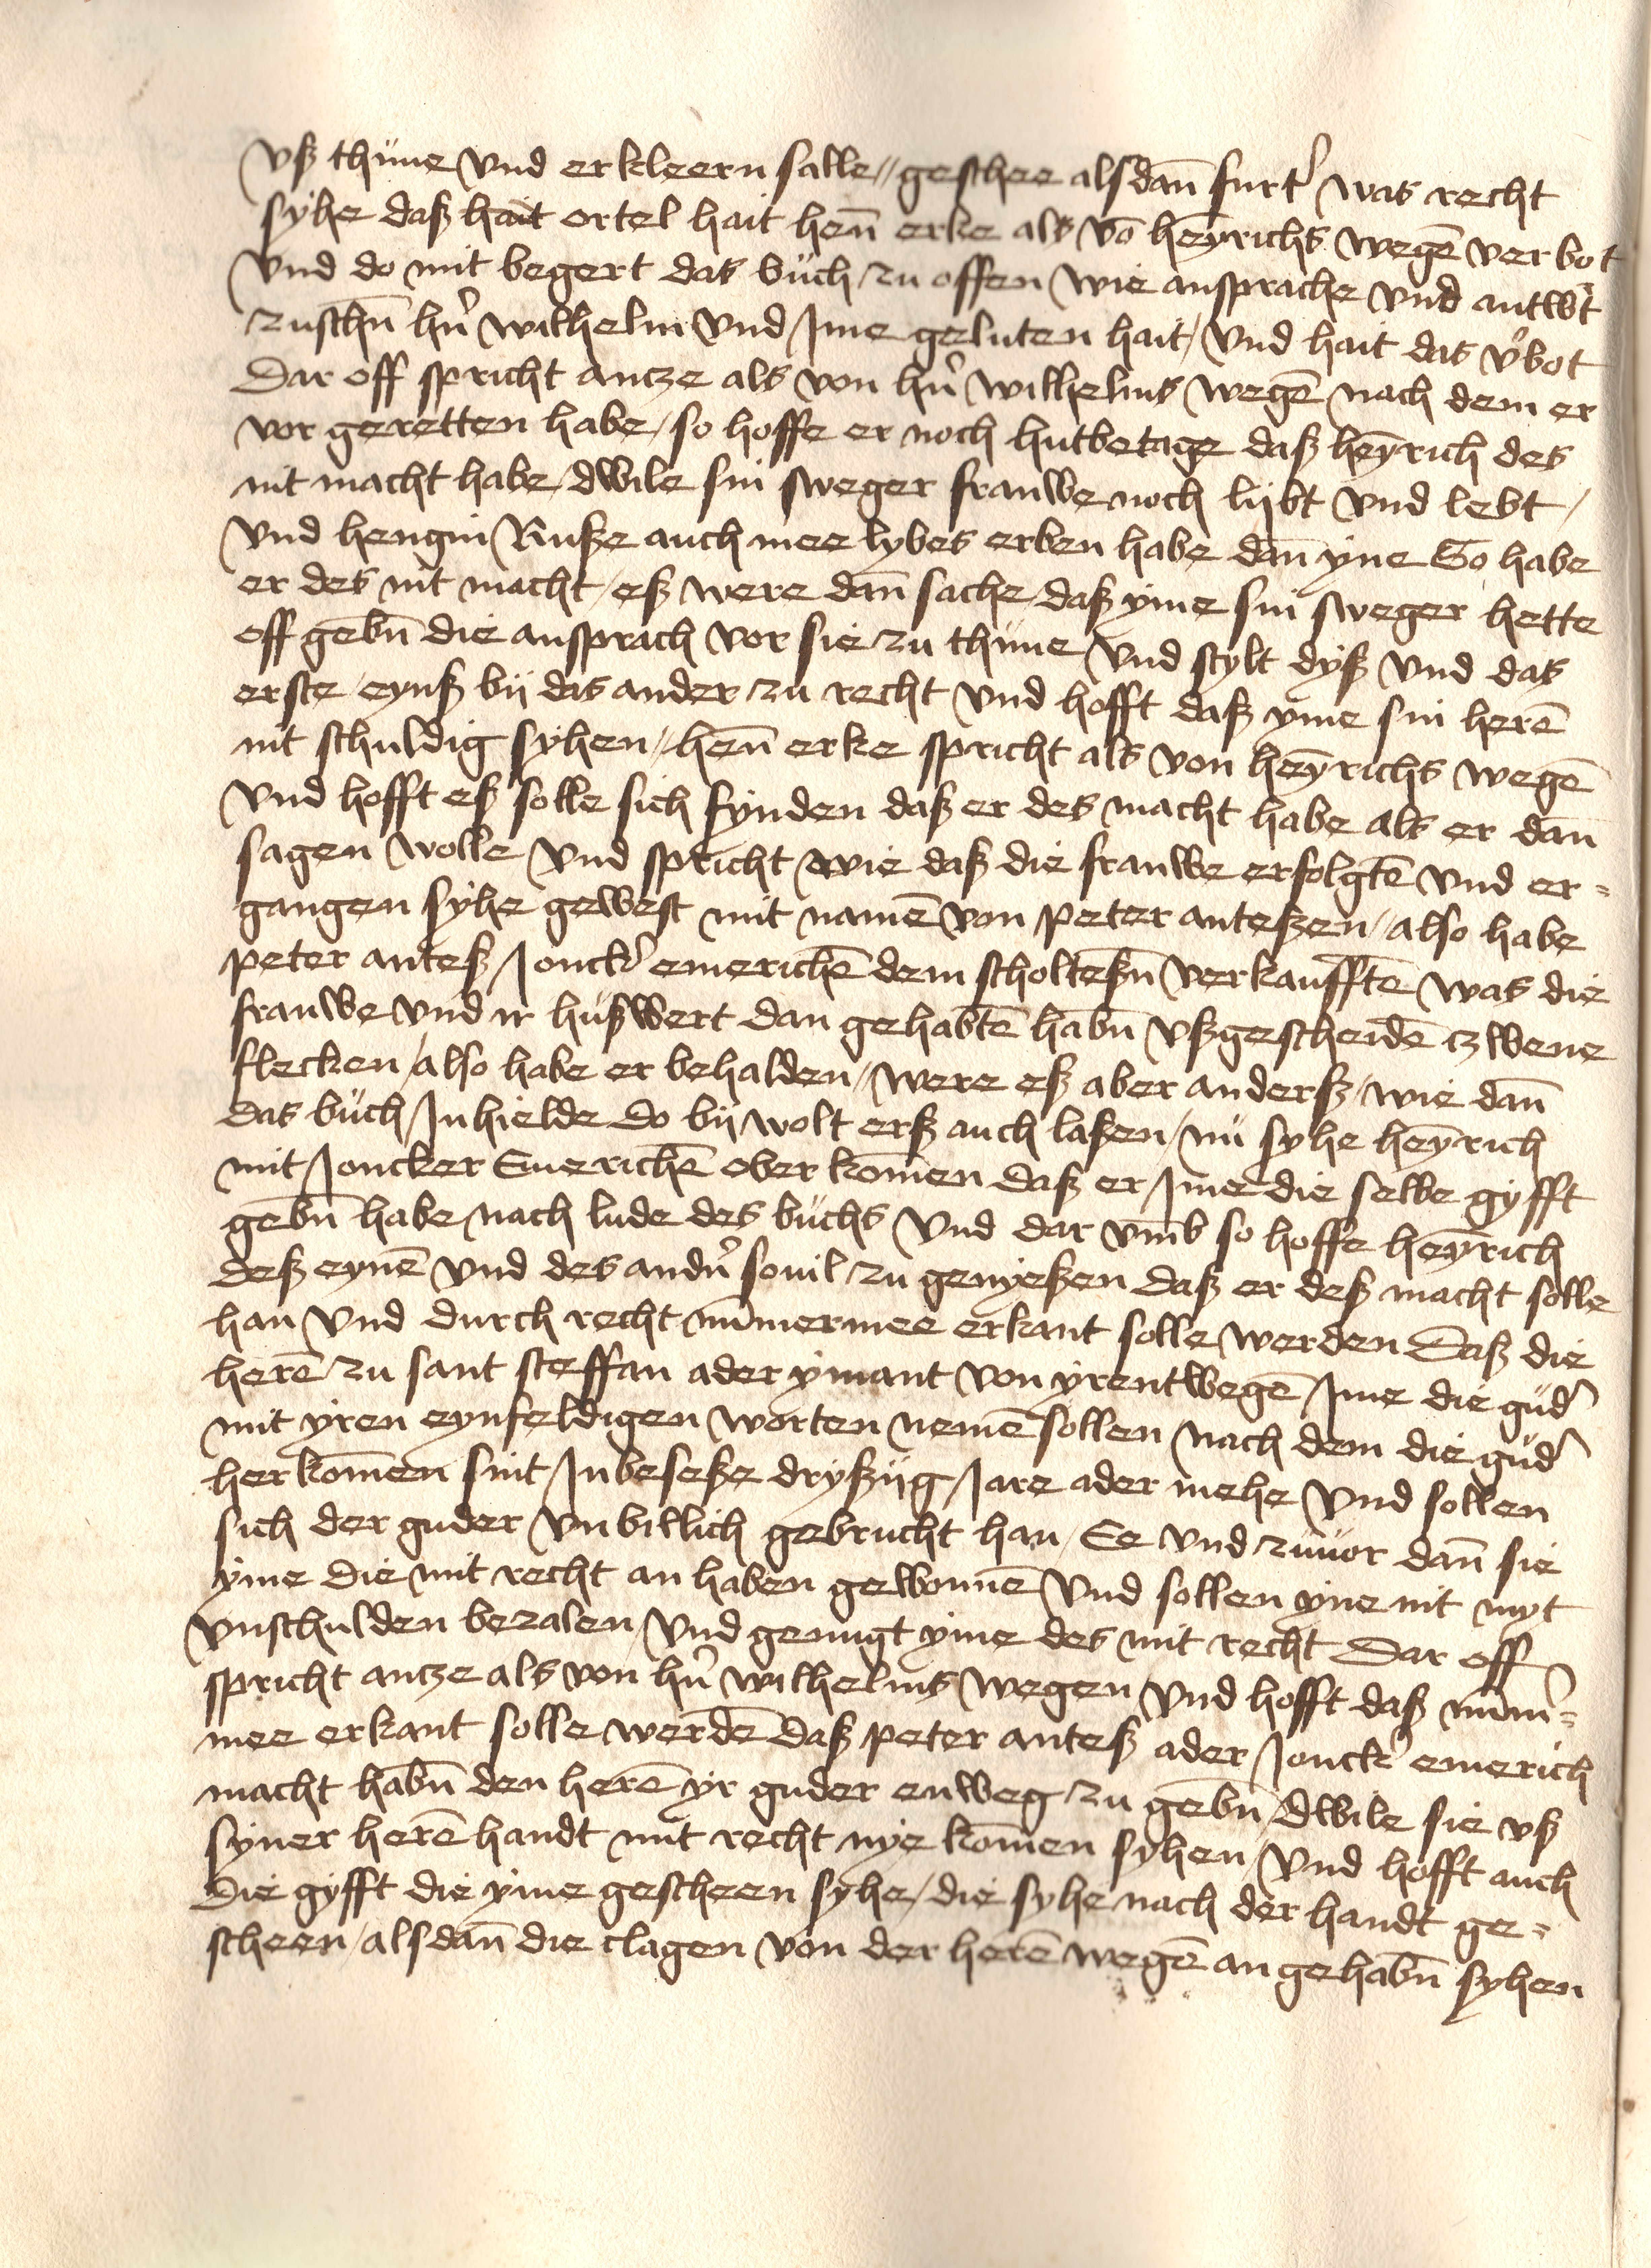 vß thüne vnd erkleern salle // geschee alsdan̄ furt̓ was recht
syhe daß hait ortel hait hen̄ erke als vō heȳrichs wegē verbot
vnd do mit begert das büch zu offen wie ansprache vnd antw̓t
zuschn̄ hn̓ wilhelm vnd Ime geluten hait / vnd hait das v̓bot
Dar off spricht antze als von hn̓ wilhelms wegē nach dem er
vor geretten habe / so hoffe er noch hutbetage daß heȳrich des
nit macht habe / dwile sin sweger frauwe noch lijbt vnd lebt /
vnd hengin Ruße auch mee lybes erben habe dan̄ yne So habe
er des nit macht / eß were dan̄ sache / daß yme sin sweger hette
off gebn̄ die ansprach vor sie zu thüne vnd stylt dyß vnd das
erste / eynß bij das ander zu recht vnd hofft daß yme sin herē
nit schuldig syhen // hen̄ erke spricht als von heȳrichs wegē
vnd hofft eß solle sich fynden daß er des macht habe als er dan̄
sagen wolle vnd spricht wie daß die frauwe erfolgtē vnd er=
gangen syhe gewest mit namē von peter anteßen / also habe
peter anteß Jonck̓ emerichē dem scholteßn̄ verkaufftē was die
frauwe vnd ir hußwert dan gehabtē habn̄ vßgescheidē tzwene
flecken / also habe er behalden / were eß aber anderß / wie dan̄
das büch Inhielde do bij wolt erß auch laßen / nü syhe heȳrich
mit Joncker Emerichē ober kom̄en daß er Ime die selbe gyfft
gebn̄ habe nach lude des büchs vnd dar vm̄b so hoffe heȳrich
deß eynē vnd des andn̓ souil zu genyeßen daß er deß macht solle
han vnd durch recht nūmermee erkant solle werden Daß die
herē zu sant steffan ader ymant von yrentwegē Ime die güd̓
mit yren eynfeldigen worten nemē sollen nach dem die güd̓
herkom̄en sint Inbeseße dryßijg Jare ader mehe vnd sollen
sich der guder vnbillich gebrucht han / Ee vnd züuor dan̄ sie
yme die mit recht an haben gewonnē vnd sollen yne nit myt
vnschulden bezalen / vnd genugt yme des mit recht Dar off
spricht antze als von hn̓ wilhelms wegen vnd hofft daß nūm̓=
mee erkant solle werdē daß peter anteß ader Jonck̓ emerich
macht habn̄ den herē yr guder enweg zu gebn̄ / dwile sie vß
syner herē handt mit recht nye kom̄en syhen / vnd hofft auch
die gyfft die yme gescheen syhe / die syhe nach der handt ge=
scheen / alsdan̄ die clagen von der herē wegē an gehabn̄ syhen